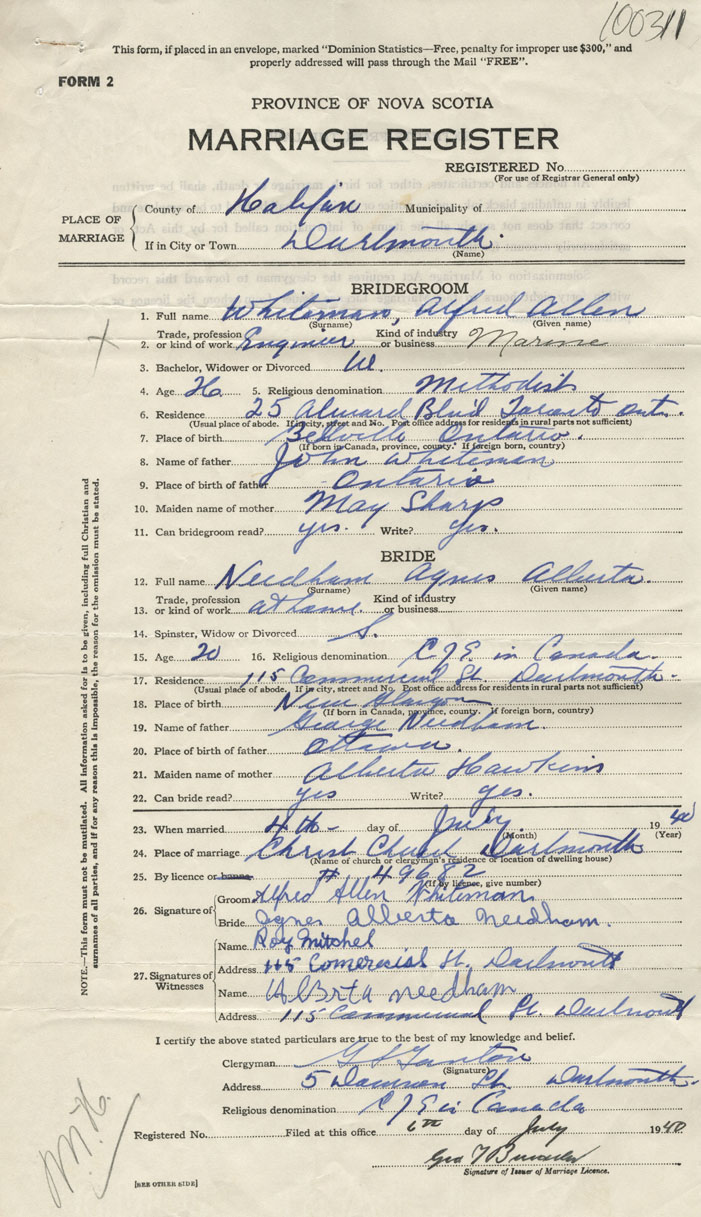 100311
This form, if placed in an envelope, marked "Dominion Statistics—Free, penalty for improper use $300," and
properly addressed will pass through the Mail "FREE".
FORM 2
PROVINCE OF NOVA SCOTIA
MARRIAGE REGISTER
REGISTERED No.
(For use of Registrar General only)
PLACE OF MARRIAGE
County of Halifax Municipality of
If in City or Town Dartmouth
(Name)
BRIDEGROOM
1. Full name Whiteman, Alfred Allen
(Surname) (Given name)
2. Trade, profession or kind of work Enginer Kind of industry or business Marine
3. Bachelor, Widower or Divorced W.
4. Age 26 5. Religious denomination Methodist
6. Residence 25 Blvd Toronto Ont.
(Usual place of abode. If in city, street and No. Post office address for residents in rural parts not sufficient)
7. Place of birth Bellville Ontario.
(If born in Canada, province, county. If foreign born, country)
8. Name of father John Whiteman
9. Place of birth of father Ontario
10. Maiden name of mother May Sharp
11. Can bridegroom read? yes. Write? yes.
BRIDE
12. Full name Needham Agnes Alberta.
(Surname) (Given name)
13. Trade, profession or kind of work at home Kind of industry or business
14. Spinster, Widow or Divorced S.
15. Age 20 16. Religious denomination C of E. in Canada.
17. Residence 115 Commercial St. Dartmouth.
(Usual place of abode. If in city, street and No. Post office address for residents in rural parts not sufficient)
18. Place of birth New Glasgow
(If born in Canada, province, county. If foreign born, country)
19. Name of father George Needham.
20. Place of birth of father Ottawa.
21. Maiden name of mother Alberta Hawkins
22. Can bride read? yes Write? yes.
23. When married 4th day of July 1940
(Month) (Year)
24. Place of marriage Christ Church Dartmouth
(Name of church or clergyman's residence or location of dwelling house)
25. By licence or banns # 49682
(If by licence, give number)
26. Signature of
Groom Alfred Allen Whiteman
Bride Agnes Alberta Needham.
27. Signatures of Witnesses
Name Roy Mitchel
Address 115 Comercial St. Dartmouth
Name Albrta Needham
Address 115 Commercial St. Dartmouth
I certify the above stated particulars are true to the best of my knowledge and belief.
Clergyman
(Signature)
Address 5 Dawson St. Dartmouth.
Religious denomination C of E in Canada
Registered No. Filed at this office 6th day of July 1940
Geo
Signature of Issuer of Marriage Licence.
[SEE OTHER SIDE]
NOTE.—This form must not be mutilated. All information asked for is to be given, including full Christian and
surnames of all parties, and if for any reason this is impossible, the reason for the omission must be stated.